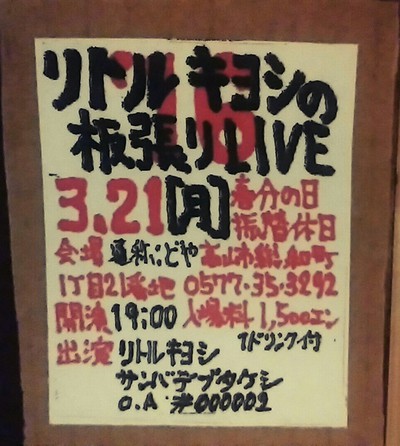 18
リトル キヨシの
板張りLIVE
3.21[月]春分の日
振替休日
会場 通称:どや 高山市 町
1丁目21番地 0577・35・3292
開演 19:00 入場料 1,500エン
1ドリンク付
出演 リトルキヨシ
サンバデブタケシ
O.A #000002